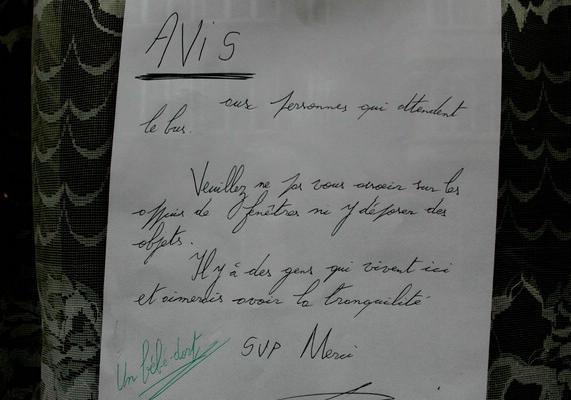 AVis
aux personnes qui attendent
le bus.
Veuillez ne pas vous assoeir sur les
appuis de fenêtres ni y déposer des
objets.
Il y à des gens qui vivent ici
et aimerais avoir la tranquilité
SVP Merci
Un bébé dort